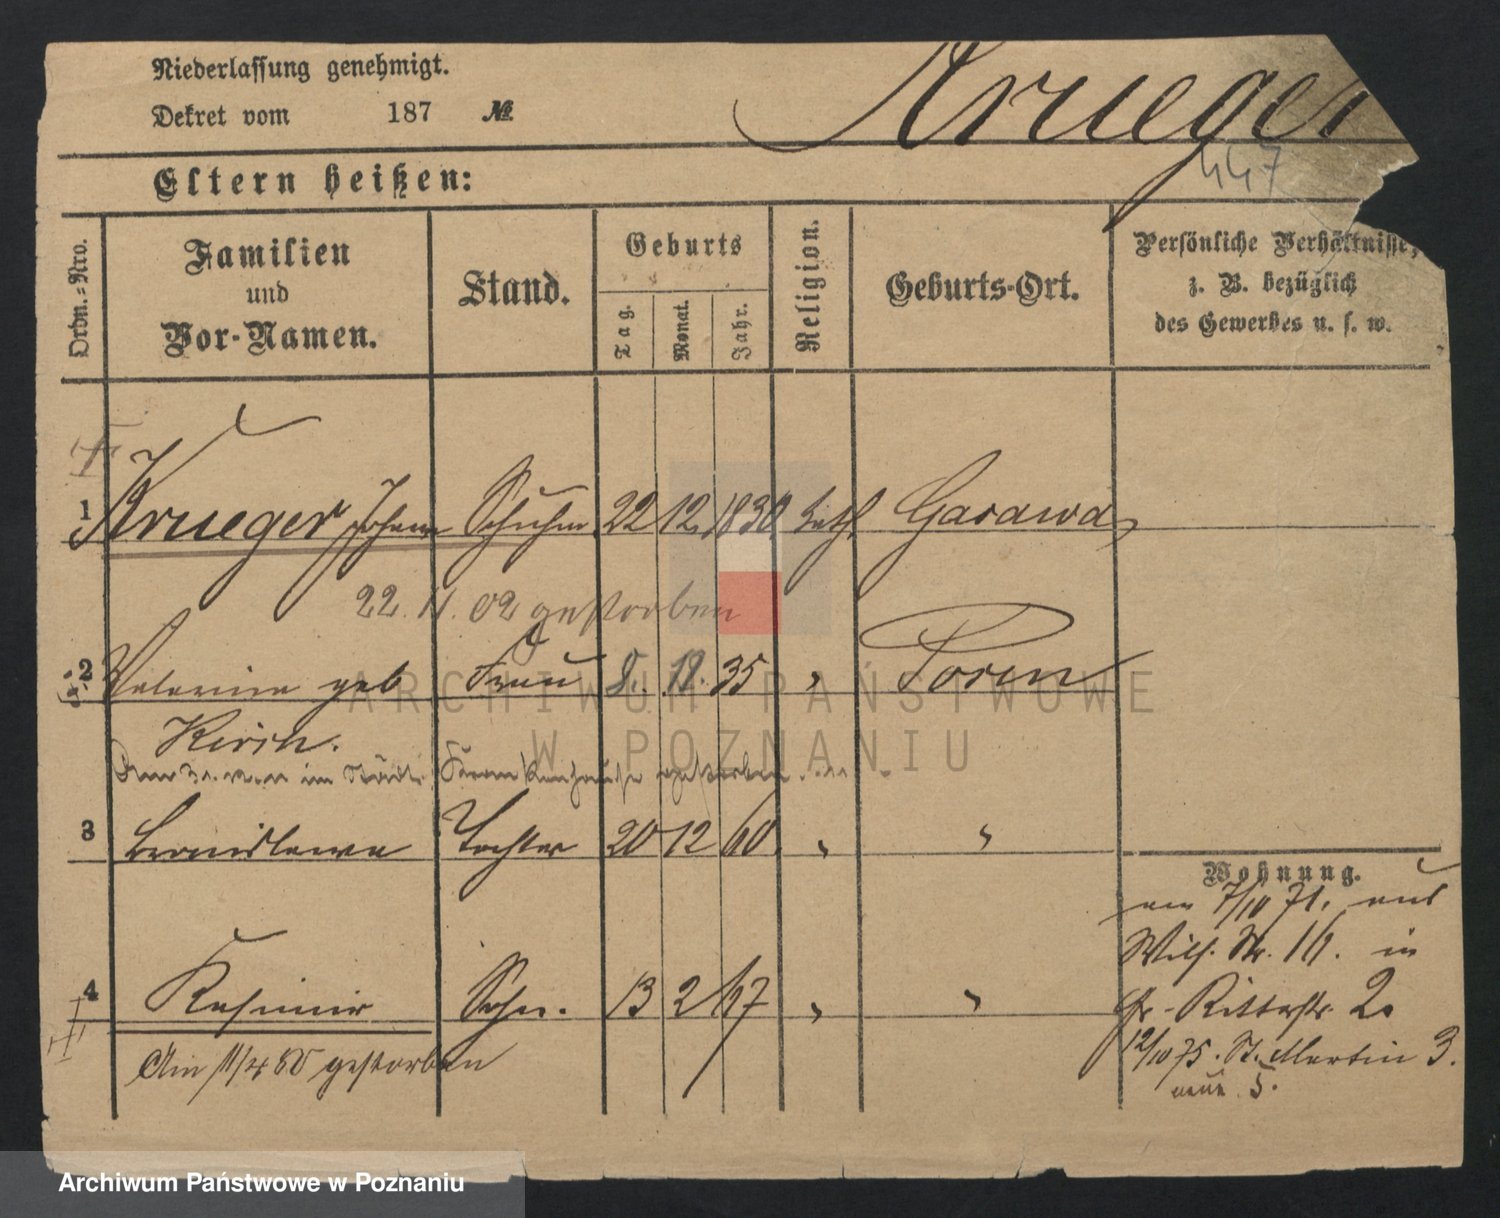 Niederlassung genehmigt.
Dekret vom 187 №
Krueger
447
Eltern heißen:
Ordn.-Nro.
Familien
und
Vor-Namen.
Stand.
Geburts
Tag.
Monat.
Jahr.
Religion.
Geburts-Ort.
Persönliche Verhältnisse,
z. B. bezüglich
des Gewerbes u. s. w.
1 Krueger Johann Schuhm. 22 12. 1830 kath. Garawa
22. 11. 02 gestorben
2 Valerina geb Frau 8. 12. 35 " Posen
Kirsch.
im Städt. Krankenhause gestorben
3 Bronislawa Tochter 20 12 60. " "
4 Kasimir Sohn. 13 2 67 " "
Am gestorben
Wohnung.
am 7/10 71. aus
Wilh. Str. 16. in
Gr. Ritterstr. 2.
12/10 75. St. Martin 3.
neue 5.
ARCHIWUM PAŃSTWOWE
W POZNANIU
Archiwum Państwowe w Poznaniu